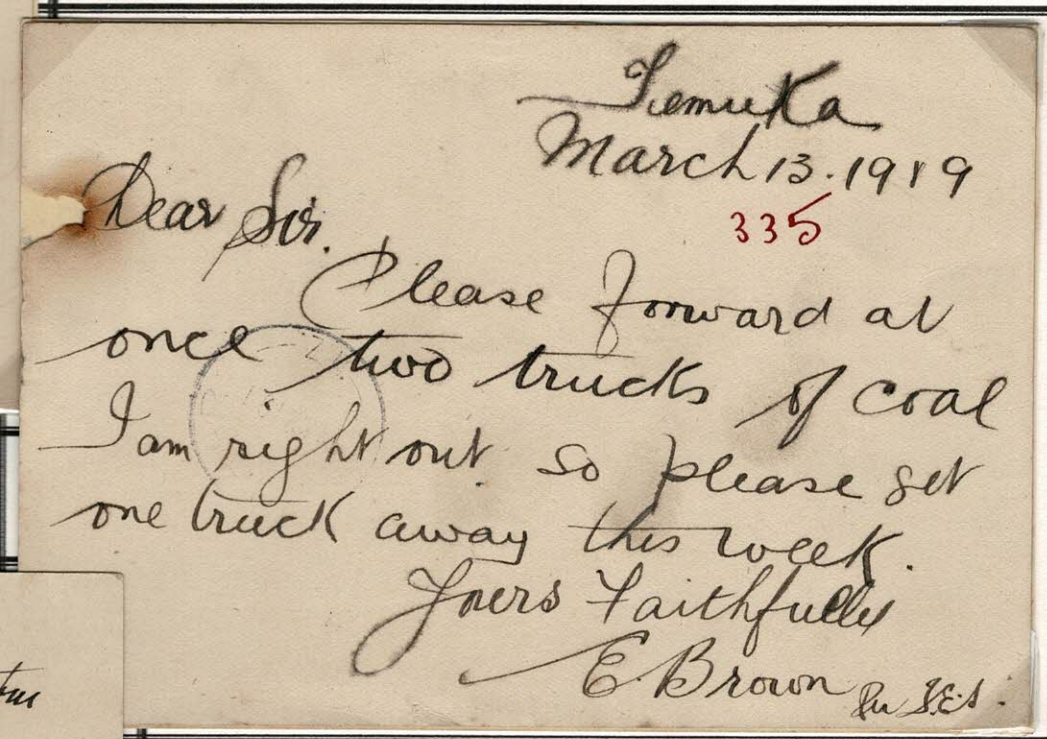 Temuka
March 13. 1919
335
Dear Sir.
Please forward at
once two trucks of coal
I am right out. so please get
one truck away this week.
Yours Faithfully
E. Brown Per